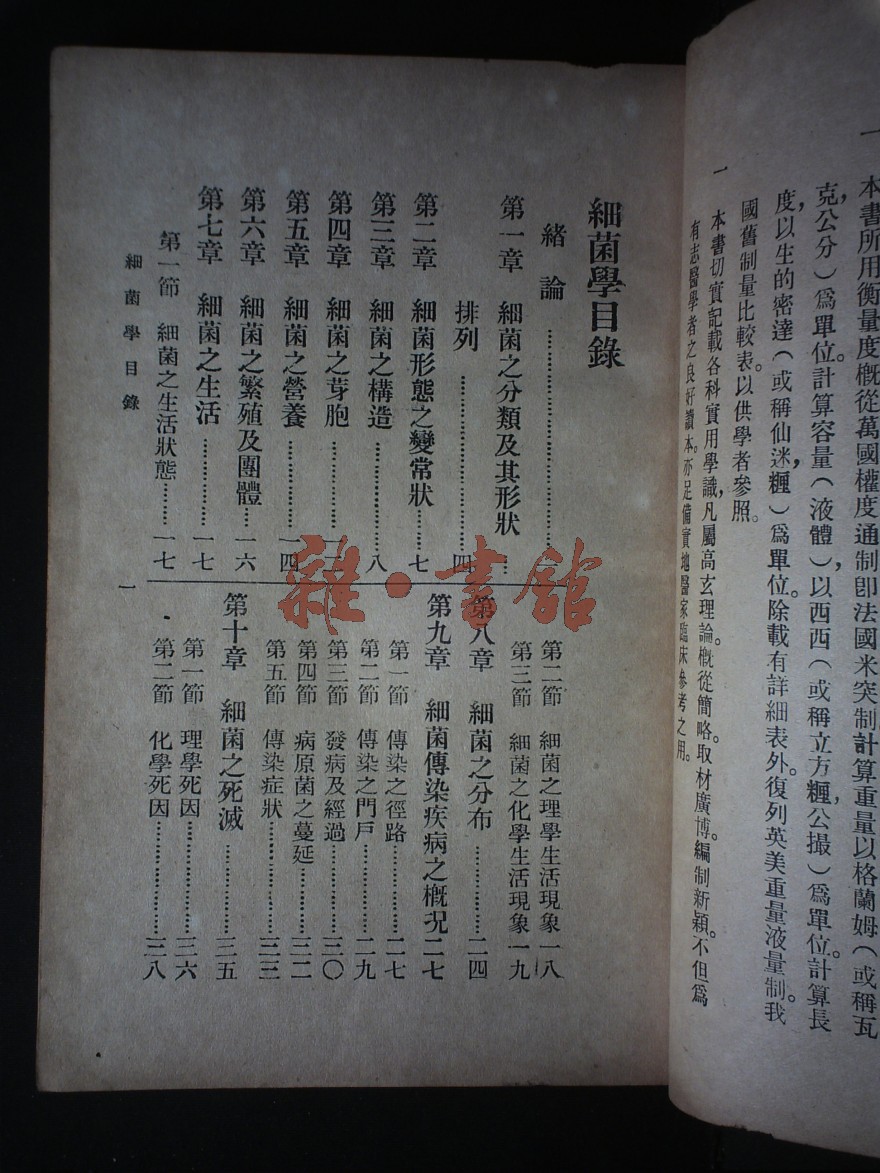 一 本書所用衡量度槪從萬國權度通制卽法國米突制計算重量以格蘭姆(或稱瓦
克,公分)爲單位。計算容量(液體),以西西(或稱立方糎,公撮)爲單位。計算長
度,以生的密達(或稱仙迷,糎)爲單位。除載有詳細表外。復列英美重量液量制我
國舊制量比較表。以供學者參照。
一 本書切實記載各科實用學識,凡屬高玄理論。槪從簡略。取材廣博。編制新穎。不但爲
有志醫學者之良好讀本。亦足備實地醫家臨床參考之用。
細菌學目錄
緒論
第一章 細菌之分類及其形狀
排列 四
第二章 細菌形態之變常狀 七
第三章 細菌之構造 八
第四章 細菌之芽胞
第五章 細菌之營養 一四
第六章 細菌之繁殖及團體 一六
第七章 細菌之生活 一七
第一節 細菌之生活狀態 一七
第二節 細菌之理學生活現象 一八
第三節 細菌之化學生活現象 一九
第八章 細菌之分布 二四
第九章 細菌傳染疾病之槪況 二七
第一節 傳染之徑路 二七
第二節 傳染之門戶 二九
第三節 發病及經過 三〇
第四節 病原菌之蔓延 三二
第五節 傳染症狀 三三
第十章 細菌之死滅 三五
第一節 理學死因 三六
第二節 化學死因 三八
細菌學目錄
一
雜·書館